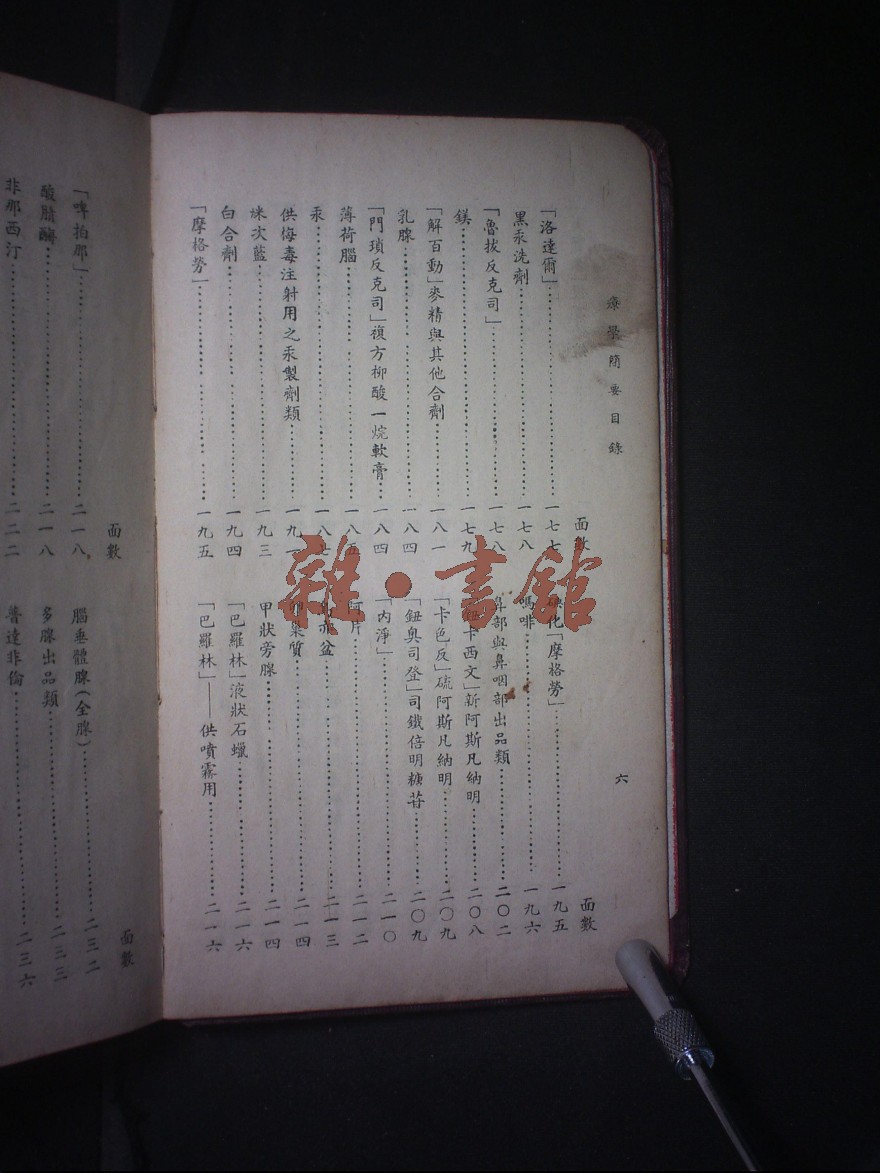 療學簡要目錄
六
面數
「洛達爾」一七七
黑汞洗劑一七八
「魯拔反克司」一七八
鎂一七九
「解百動」麥精與其他合劑一八一
乳腺一八四
「門瑣反克司」複方柳酸一烷軟膏一八四
薄荷腦一八五
汞一八七
供侮毒注射用之汞製劑類一九一
㳽次藍一九三
白合劑一九四
「摩格勞」一九五
面數
碘化「摩格勞」一九五
嗎啡一九六
鼻部與鼻咽部出品類二〇二
卡西文」新阿斯凡納明二〇八
「卡色反」硫阿斯凡納明二〇九
「鈕奥司登」司鐵倍明糖苷二〇九
「內淨」二一〇
阿片二一二
盆二一三
巢質二一四
甲狀旁腺二一四
「巴羅林」液狀石蠟二一六
「巴羅林」——供噴霧用二一六
面數
「啤拍那」二一八
酸腈酶二一八
非那西汀二二二
面數
腦垂體腺(全腺)二三二
多腺出品類二三三
普達非倫二三六
雜·書館